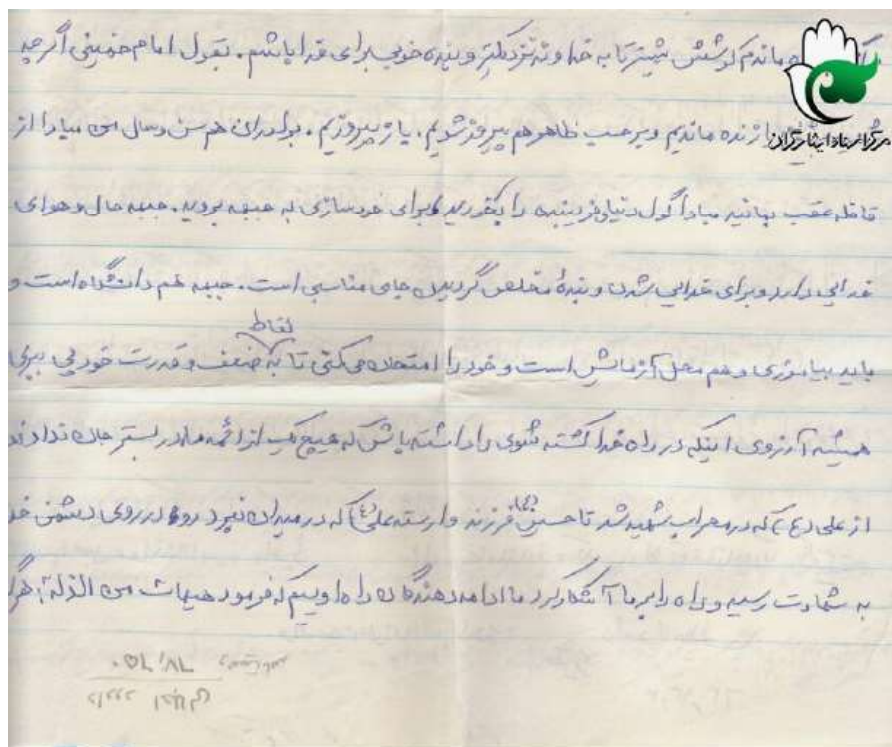 مرکز اسناد ایثارگران
ماندم کوشش بیشتر تا به خداوند نزدیکتر و بنده خوبی برای خدا باشم. بقول امام خمینی اگرچه
زنده ماندیم و بر حسب ظاهر هم پیروز شویم. باز پیروزیم. برادران هم سن و سال من مبادا از
قافله عقب بمانید مبادا گول دنیا و فریبنده را بخورید و برای خودسازی به جبهه بروید. جبهه حال و هوای
خدایی دارد و برای خدایی شدن و بندهٔ مخلص گردیدن جای مناسبی است. جبهه هم دانشگاه است و
باید بیاموزی و هم محل آزمایش است و خود را امتحان می کنی تا به نقاط ضعف و قدرت خود پی ببری
همیشه آرزوی اینکه در راه خدا کشته شوی را داشته باش که هیچ یک از ائمه ما در بستر جان ندادند
از علی (ع) که در محراب شهید شد تا حسین (ع) فرزند وارسته علی (ع) که در میدان نبرد رو در روی دشمن خد
به شهادت رسید و راه را بر ما آشکار کرد ما ادامه دهندگان راه اوییم که فرمود هیهات من الذلة